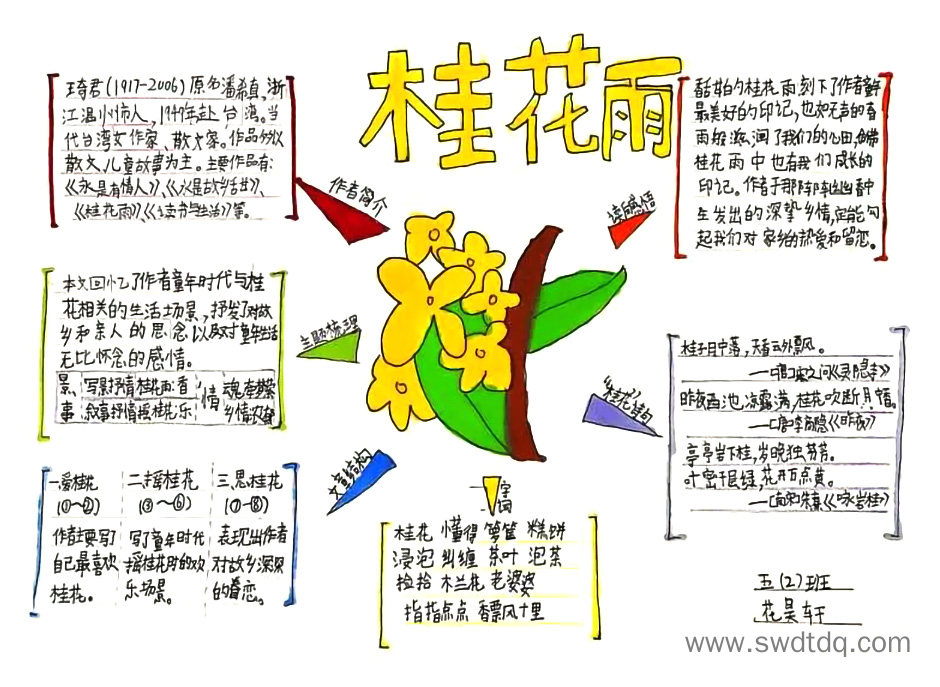 桂花雨
作者简介
琦君(1917-2006)原名潘希真,浙
江温州市人,1949年赴台湾。当
代台湾女作家、散文家。作品多以
散文、儿童故事为主。主要作品有:
《永是有情人》、《水是故乡甜》、
《桂花雨》、《读书与生活》等。
主题梳理
本文回忆了作者童年时代与桂
花相关的生活场景,抒发了对故
乡和亲人的思念以及对童年生活
无比怀念的感情。
景、写景抒情桂花雨香 情 魂牵梦萦
事 叙事抒情摇桂花乐 乡情浓郁
文章结构
一.爱桂花
(①~②)
作者主要写了
自己最喜欢
桂花。
二.摇桂花
(③~⑥)
写了童年时代
摇桂花时的欢
乐场景。
三.思桂花
(⑦-⑧)
表现出作者
对故乡深深
的眷恋。
字词
桂花 懂得 箩筐 糕饼
浸泡 纠缠 茶叶 泡茶
捡拾 木兰花 老婆婆
指指点点 香飘十里
读后感悟
最美好的印记,也如无声的春
雨般滋润了我们的心田,
桂花雨中也有我们成长的
印记。作者于那阵阵幽香中
生发出的深挚乡情,定能勾
起我们对家乡的热爱和留恋。
"桂花"佳句
桂子月中落,天香云外飘。
——[唐]宋之问《灵隐寺》
昨夜西池凉露满,桂花吹断月中香。
——[唐]李商隐《昨夜》
亭亭岩下桂,岁晚独芬芳。
叶密千层绿,花开万点黄。
——[南宋]朱熹《咏岩桂》
五(2)班
花昊轩
www.swdtdq.com